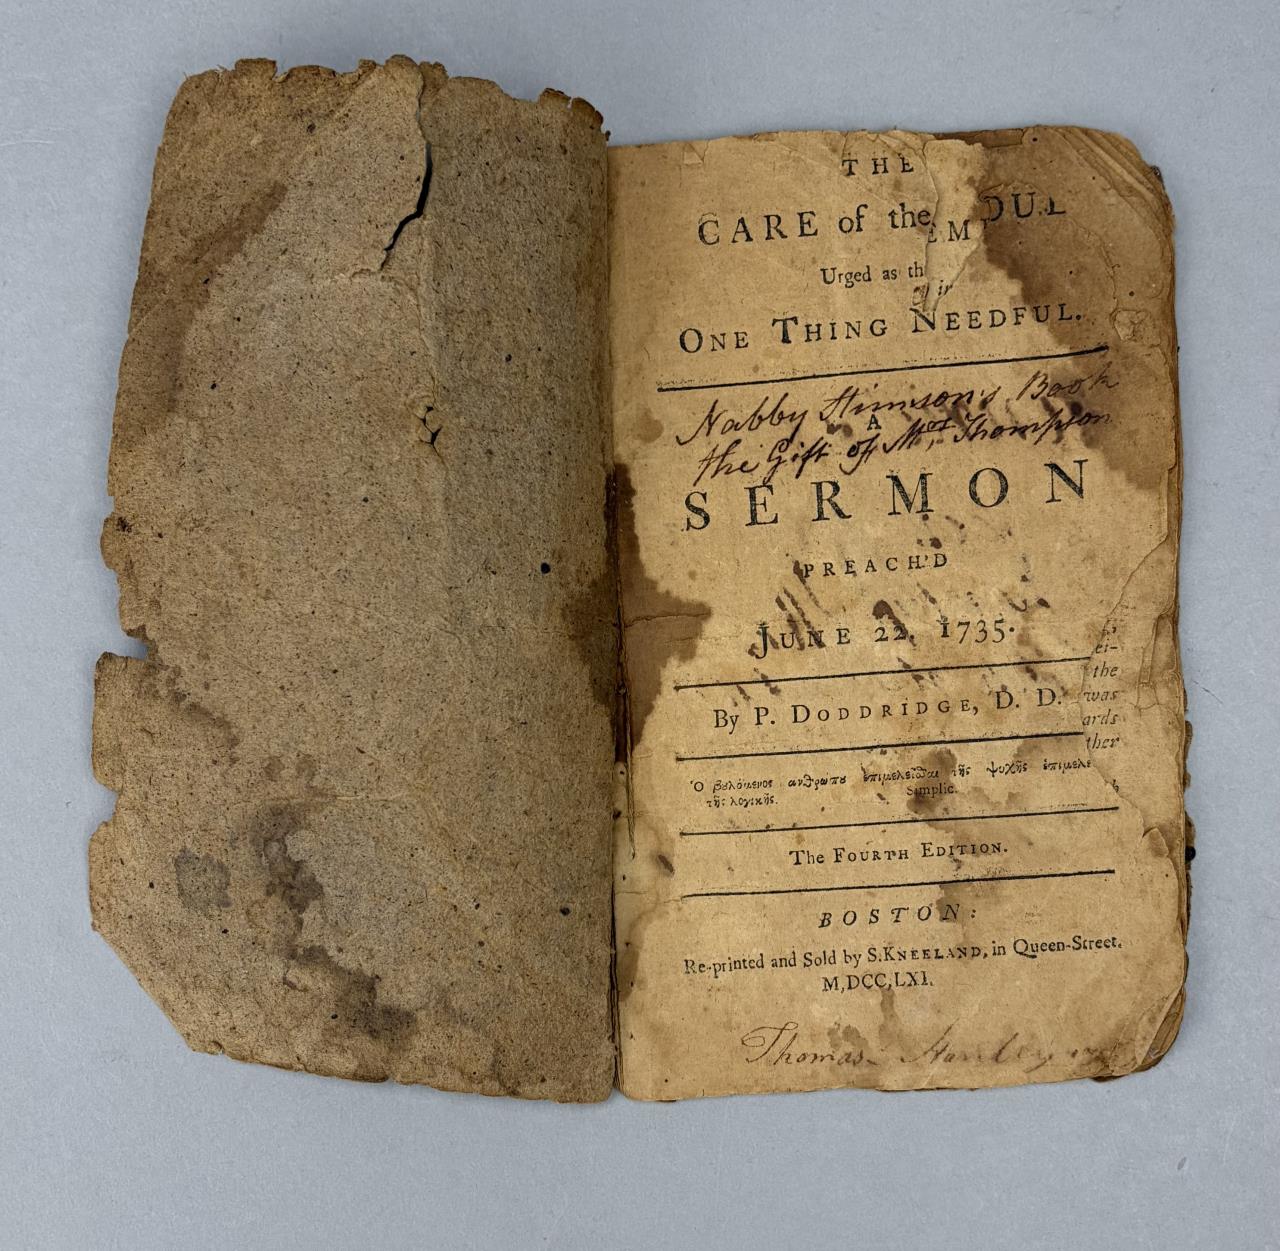 THE
CARE of the OUL
EM
Urged as th
ir
ONE THING NEEDFUL.
Nabby Stimson's Book
A
the Gift of Mrs. Thompson
SERMON
PREACH'D
JUNE 22, 1735.
ei-
the
By P. DODDRIDGE, D. D.
was
ards
ther
Ὁ βȣλόμενος ανθρώπȣ ἐπιμελεῖσθαι τῆς ψυχῆς ἐπιμελε
τῆς λογικῆς. Simplic.
The FOURTH EDITION.
BOSTON:
Re-printed and Sold by S. KNEELAND, in Queen-Street.
M,DCC,LXI.
Thomas